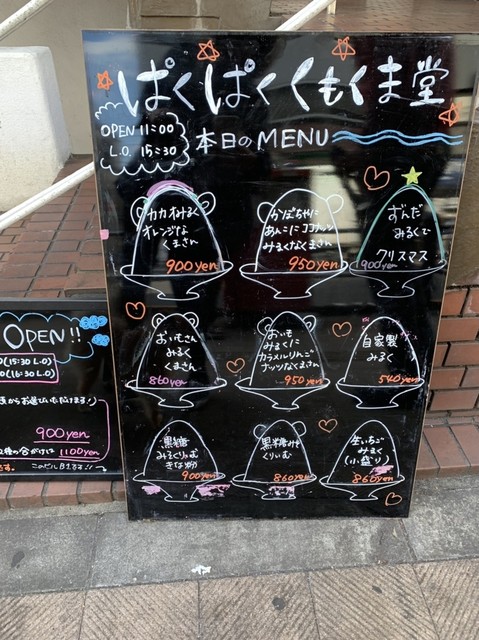 ぱくぱくくもくま堂
OPEN 11:00
L.O. 15:30
本日のMENU
カカオみるく
オレンジな
くまさん
900yen
かぼちゃに
あんこにココナッツ
みるくなくまさん
950yen
ずんだ
みるくで
クリスマス
900yen
おいもさん
みるく
くまさん
860yen
おいも
みるくに
カラメルりんご
ナッツなくまさん
950yen
自家製
みるく
540yen
黒糖
みるくりぃむ
きな粉
900yen
黒糖みそ
くりぃむ
860yen
生いちご
みるく
(小盛り)
860yen
OPEN!!
(15:30 L.O)
(16:30 L.O)
からお選びいただけます!
900yen
1100yen
です。
このビルB1です!!